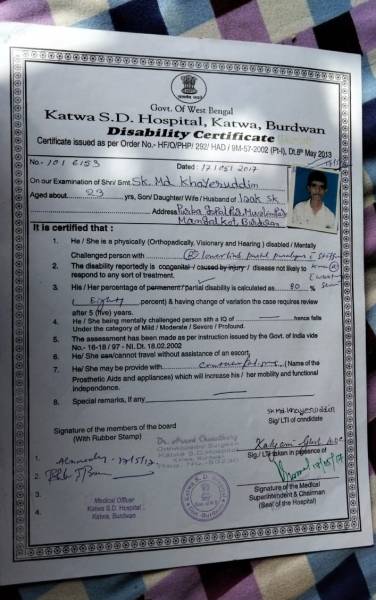 Govt. Of West Bengal
Katwa S.D. Hospital, Katwa, Burdwan
Disability Certificate
Certificate issued as per Order No.- HF/O/PHP/ 292/ HAD / 9M-57-2002 (Pt-I), Dt.8th May 2013
No.- 1016153 Dated : 17/05/2017
On our Examination of Shri/ Smt. Sk. Md Khayeruddin
Aged about 23 yrs, Son/ Daughter/ Wife / Husband of
Address
Mangal Kot, Burdwan
It is certified that :
1. He / She is a physically (Orthopedically, Visionary and Hearing ) disabled / Mentally
Challenged person with (R) lower limb
2. The disability reportedly is congenital / caused by injury / disease not likely to
respond to any sort of treatment.
3. His / Her percentage of permanent / Partial disability is calculated as 80 %
( Eighty percent) & having change of variation the case requires review
after 5 (five) years.
4. He / She being mentally challenged person sith a IQ of hence falls
Under the category of Mild / Moderate / Severe / Profound.
5. The assessment has been made as per instruction issued by the Govt. of India vide
No. -16-18 / 97 - NI. DI. 18.02.2002
6. He/ She can/cannot travel without assistance of an escort.
7. He/ She may be provided with (Name of the
Prosthetic Aids and appliances) which will increase his / her mobility and functional
independence.
8. Special remarks, if any
Sk Md Khayeruddin
Sig/ LTI of cnndidate
Signature of the members of the board
(With Rubber Stamp)
Sig./ LTI taken in presence of
1. 17/5/17
2.
3.
4.
Medical Officer
Katwa S.D. Hospital
Katwa, Burdwan
Signature of the Medical
Superintendent & Chairman
(Seal of the Hospital)